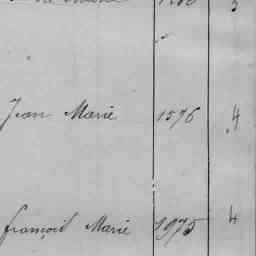 Jean Marie 1576 4
françois Marie 1975 4